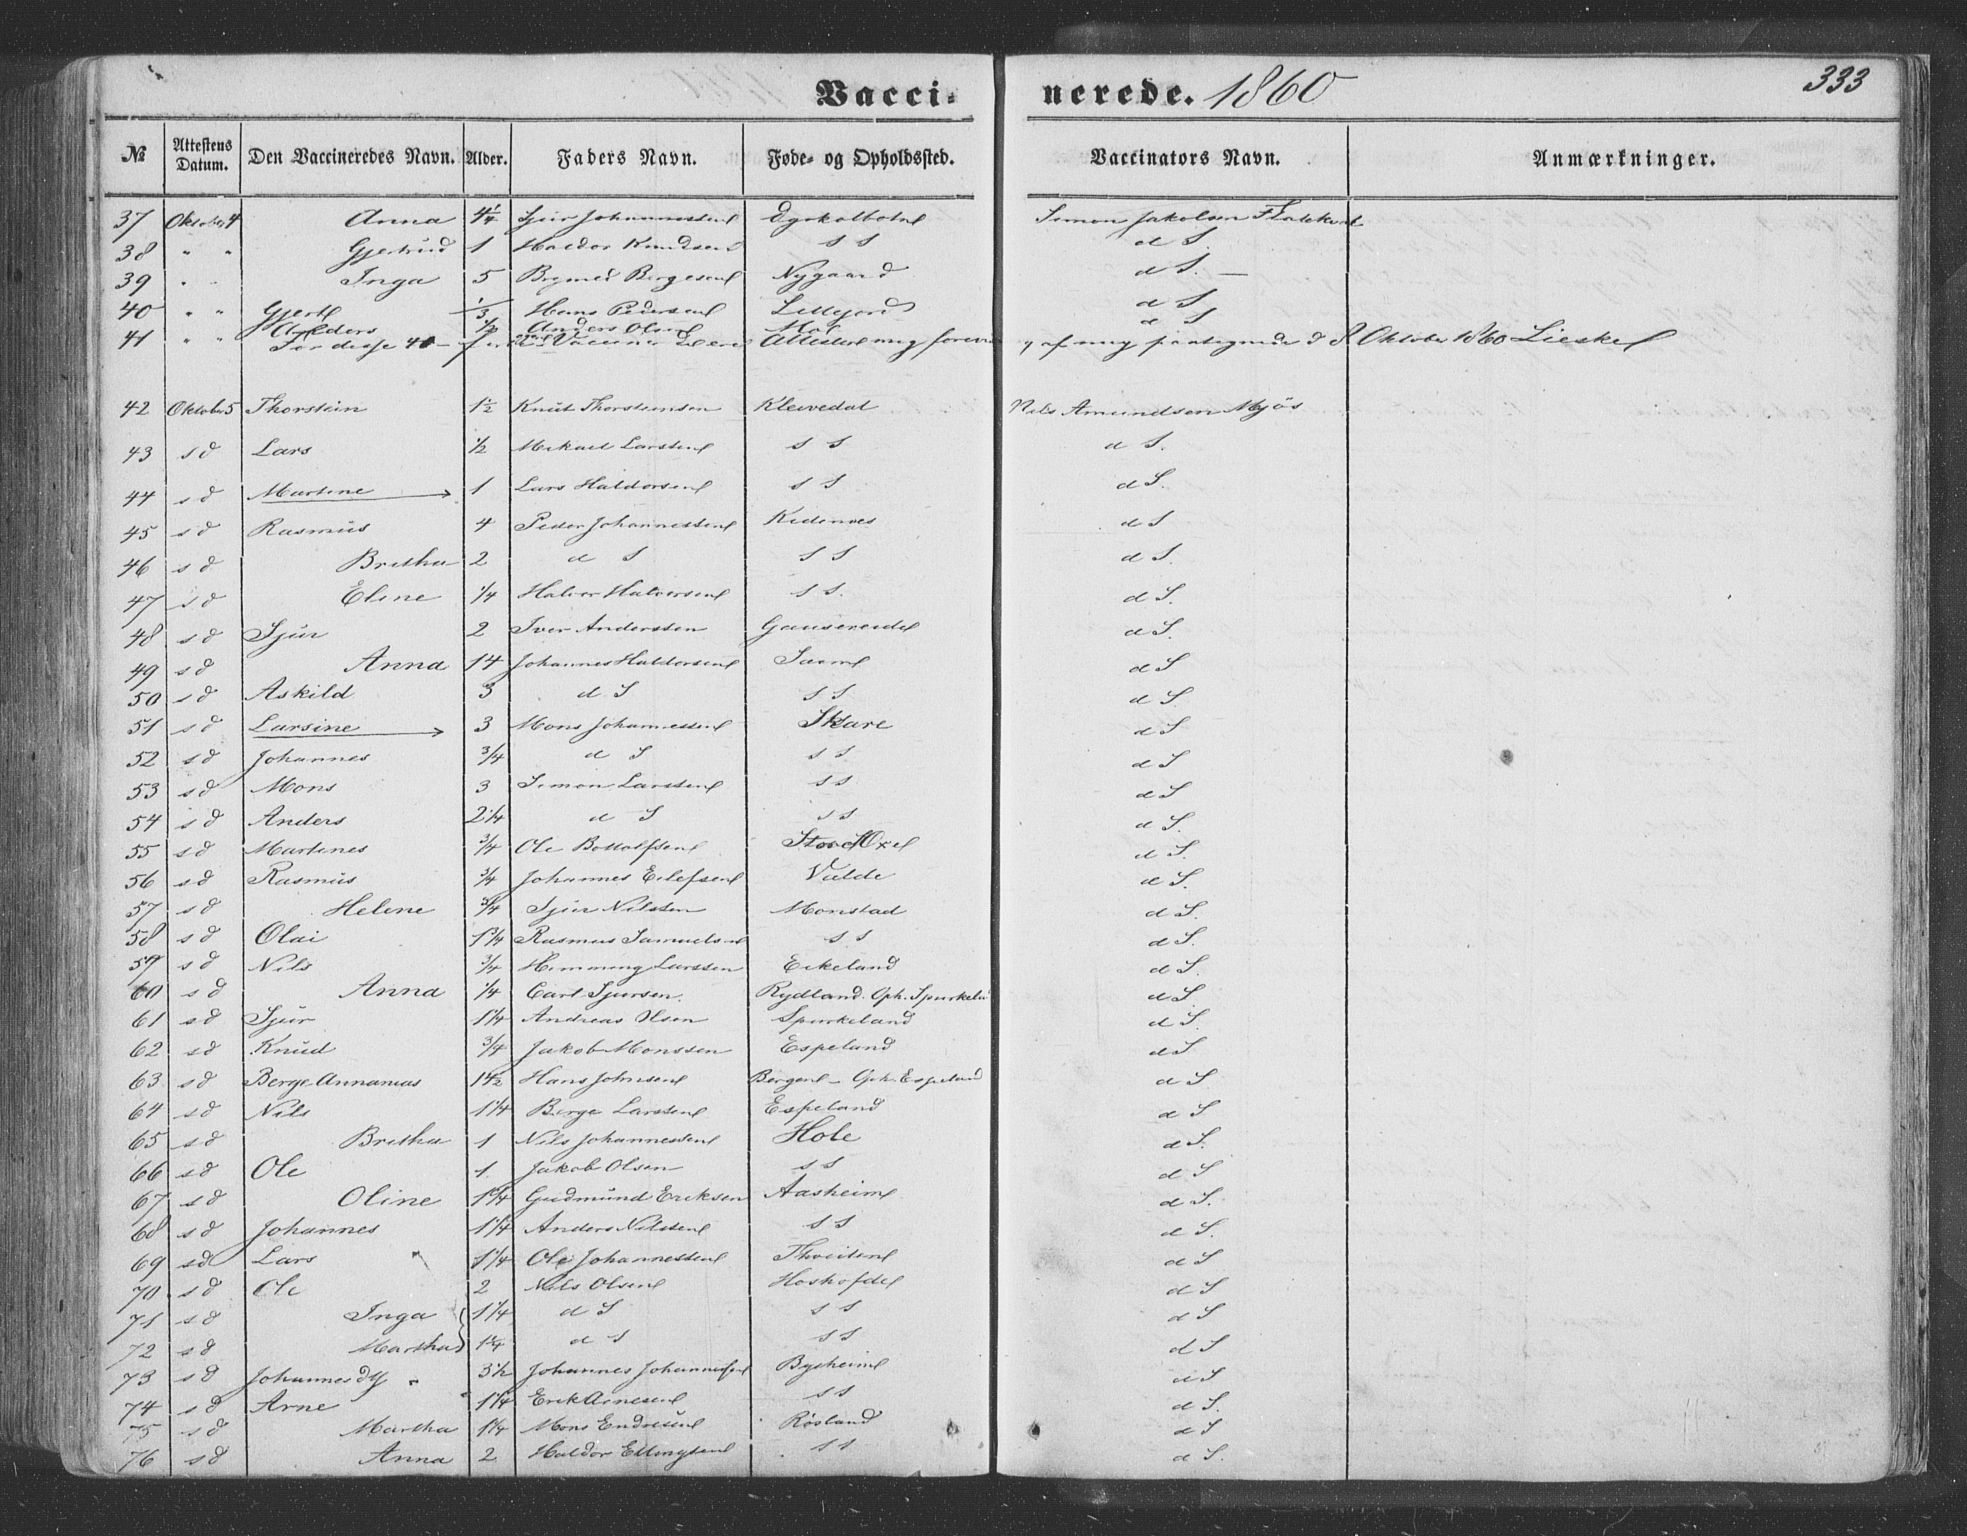 Vacci- nerede. 1860 333
№ Attestens Datum. Den Vaccineredes Navn. Alder. Faders Navn. Føde- og Opholdssted. Vaccinators Navn. Anmærkninger.
37 Oktober 4 Anna 4¼ Sjur Johannessen Simon Jakobsen
38 " " Gjertrud 1 Haldor Knudsen s s d S.
39 " " Inga 5 Bergesen Nygaard d S.
40 " " Gjert 1/3 Hans Pedersen d S
41 " " Anders ½ Anders Olsen d S
For disse 41 af mig Oktober 1860
42 Oktober 5 Thorstein 1½ Knut Thorsteinsen Kleivedal Nils Amundsen Mjøs
43 s d Lars ½ Mikael Larssen s s d S.
44 s d Martine 1 Lars Haldorsen s s d S.
45 s d Rasmus 4 Peder Johannessen d S
46 s d Britha 2 d S s s d S.
47 s d Eline ¼ Halvor Halvorsen s s. d S.
48 s d Sjur 2 Iver Anderssen d S.
49 s d Anna 14 Johannes Haldorsen d S
50 s d Askild 3 d S s s d S
51 s d Larsine 3 Mons Johannessen Skare d S
52 s d Johannes ¾ d S s s d S
53 s d Mons 3 Simon Larssen s s d S
54 s d Anders 2¼ d S s s d S.
55 s d Martines ¾ Ole Bottolfsen d S.
56 s d Rasmus ¾ Johannes Eilefsen Valde d S.
57 s d Helene ¾ Sjur Nilssen Monstad d S.
58 s d Olai 1¾ Rasmus Samuelsen s s d S.
59 s d Nils ¾ Hemming Larssen Eikeland d S.
60 s d Anna ¼ Carl Sjursen. Rydland. Oph. Spurkeland d S.
61 s d Sjur 1¼ Andreas Olsen Spurkeland d S.
62 s d Knud ¾ Jakob Monssen Espeland d S
63 s d Berge Annanias 1½ Hans Johnsen Bergen - Oph. Espeland d S
64 s d Nils 1¼ Berge Larssen Espeland d S
65 s d Britha 1 Nils Johannessen Hole d S.
66 s d Ole 1. Jakob Olsen s s d S
67 s d Oline 1¼ Gudmund Eriksen Aasheim d S.
68 s d Johannes 1¼ Anders Nilssen s s d S.
69 s d Lars 1¼ Ole Johannessen Thveiten d S
70 s d Ole 2 Nils Olsen d S
71 s d Inga 1¼ d S s s d S
72 s d Martha 1¼ d S s s d S
73 s d Johannes 3½ Johannes Johannessen Bysheim d S
74 s d Arne 1¼ Erik Arnesen s s d S.
75 s d Martha 1¼ Mons Endresen Røsland d S
76 s d Anna 2 Haldor Ellingsen s s d S.